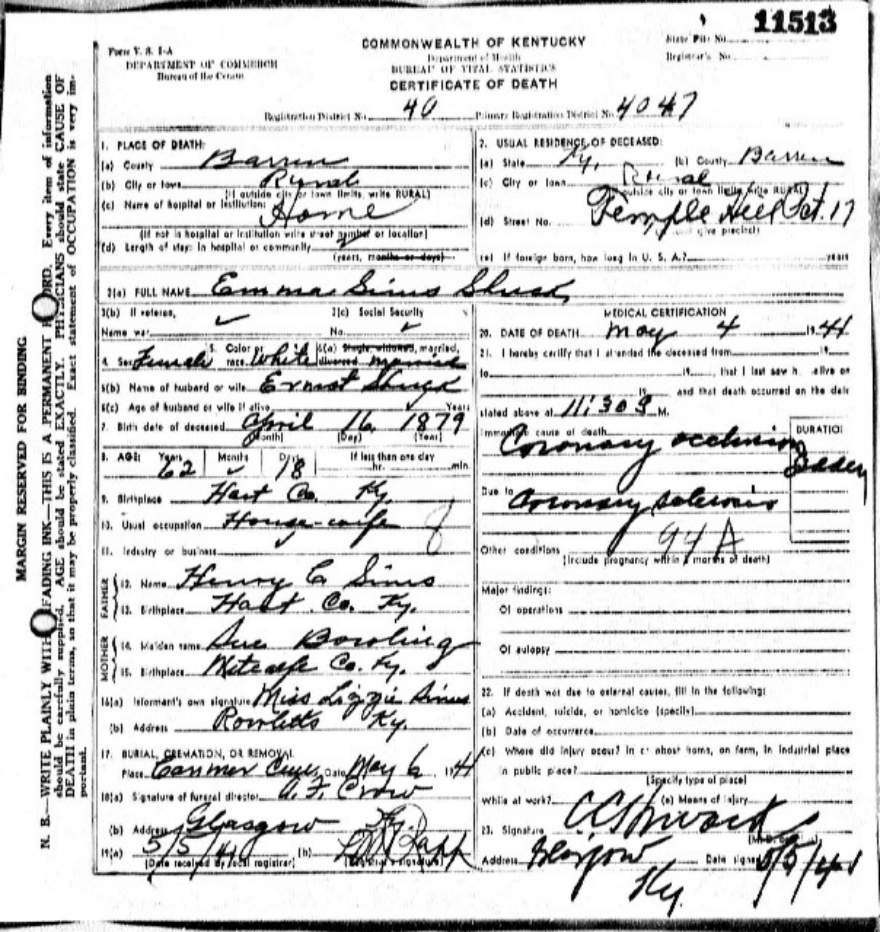 11513
Form V. S. 1-A
DEPARTMENT OF COMMERCE
Bureau of the Census
COMMONWEALTH OF KENTUCKY
Department of Health
BUREAU OF VITAL STATISTICS
CERTIFICATE OF DEATH
State File No.
Registrar's No.
Registration District No. 40 Primary Registration District No. 4047
1. PLACE OF DEATH:
(a) County Barren
(b) City or town Rural
(If outside city or town limits, write RURAL)
(c) Name of hospital or institution: Home
(If not in hospital or institution write street number or location)
(d) Length of stay: In hospital or community
(years, months or days)
2. USUAL RESIDENCE OF DECEASED:
(a) State Ky. (b) County Barren
(c) City or town Rural
(If outside city or town limits write RURAL)
(d) Street No. Temple Hill Pct. 17
give precinct)
(e) If foreign born, how long in U. S. A.? years
3(a) FULL NAME Emma Sims Shuck
3(b) If veteran,
Name war
3(c) Social Security
No.
4. Sex Female 5. Color or race White 6(a) Single, widowed, married, divorced married
6(b) Name of husband or wife Ernest Shuck
6(c) Age of husband or wife if alive Years
7. Birth date of deceased April 16, 1879
(Month) (Day) (Year)
8. AGE: Years 62 Months Days 18 If less than one day hr. min.
9. Birthplace Hart Co. Ky.
10. Usual occupation House-wife
11. Industry or business
FATHER
12. Name Henry C. Sims
13. Birthplace Hart Co. Ky.
MOTHER
14. Maiden name Sue Bowling
15. Birthplace Metcalfe Co. Ky.
16(a) Informant's own signature Miss Lizzie Sims
(b) Address Rowletts Ky.
17. BURIAL, CREMATION, OR REMOVAL
Place Canmer Date May 6 1941
18(a) Signature of funeral director A. F. Crow
(b) Address Glasgow Ky.
19(a) 5/5/41 (b)
(Date received by local registrar) (Registrar's signature)
MEDICAL CERTIFICATION
20. DATE OF DEATH May 4 1941
21. I hereby certify that I attended the deceased from 19
to 19, that I last saw h alive on
19 and that death occurred on the date
stated above at 11:30 M.
Immediate cause of death
Coronary occlusion
DURATION
Due to Coronary sclerosis
94A
Other conditions
(Include pregnancy within 3 months of death)
Major findings:
Of operations
Of autopsy
22. If death was due to external causes, fill in the following:
(a) Accident, suicide, or homicide (specify)
(b) Date of occurrence
(c) Where did injury occur? In or about home, on farm, in industrial place
in public place?
(Specify type of place)
While at work? (e) Means of injury
23. Signature
Address Glasgow Date signed 5/5/41
Ky.
MARGIN RESERVED FOR BINDING
N. B.—WRITE PLAINLY WITH UNFADING INK—THIS IS A PERMANENT RECORD. Every item of information
should be carefully supplied. AGE should be stated EXACTLY. PHYSICIANS should state CAUSE OF
DEATH in plain terms, so that it may be properly classified. Exact statement of OCCUPATION is very im-
portant.